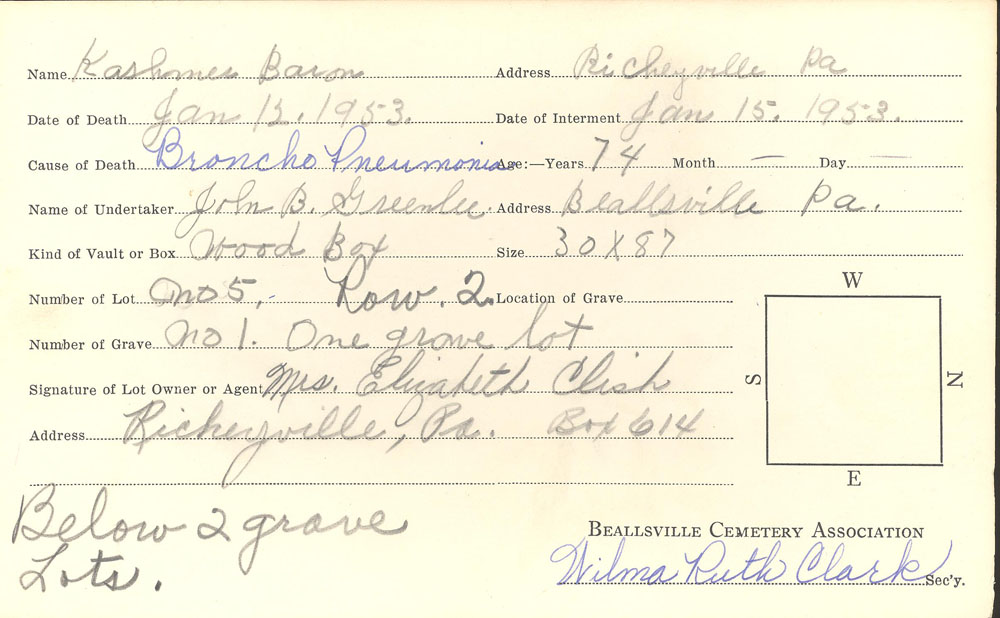 Name Kashmer Baron Address Richeyville Pa
Date of Death Jan 12. 1953. Date of Interment Jan 15. 1953.
Cause of Death Broncho Pneumonia Age:—Years 74 Month — Day —
Name of Undertaker John B. Greenlee Address Beallsville Pa.
Kind of Vault or Box Wood Box Size 30X87
Number of Lot no 5. Row. 2. Location of Grave
Number of Grave no 1. One grave lot
Signature of Lot Owner or Agent Mrs. Elizabeth Clish
Address Richeyville, Pa. Box 614
W
S
N
E
Below 2 grave
Lots.
BEALLSVILLE CEMETERY ASSOCIATION
Wilma Ruth Clark Sec'y.